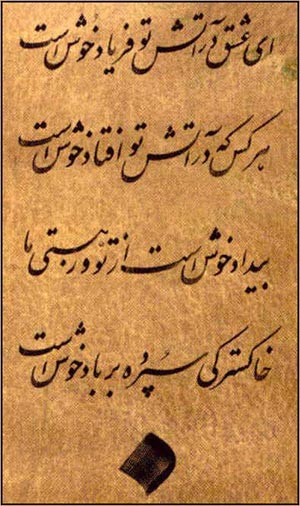 ای عشق در آتش تو فریاد خوش است
هر کس که در آتش تو افتاد خوش است
بیداد خوش است از تو وز هستی ما
خاکسترکی سپرده بر باد خوش است